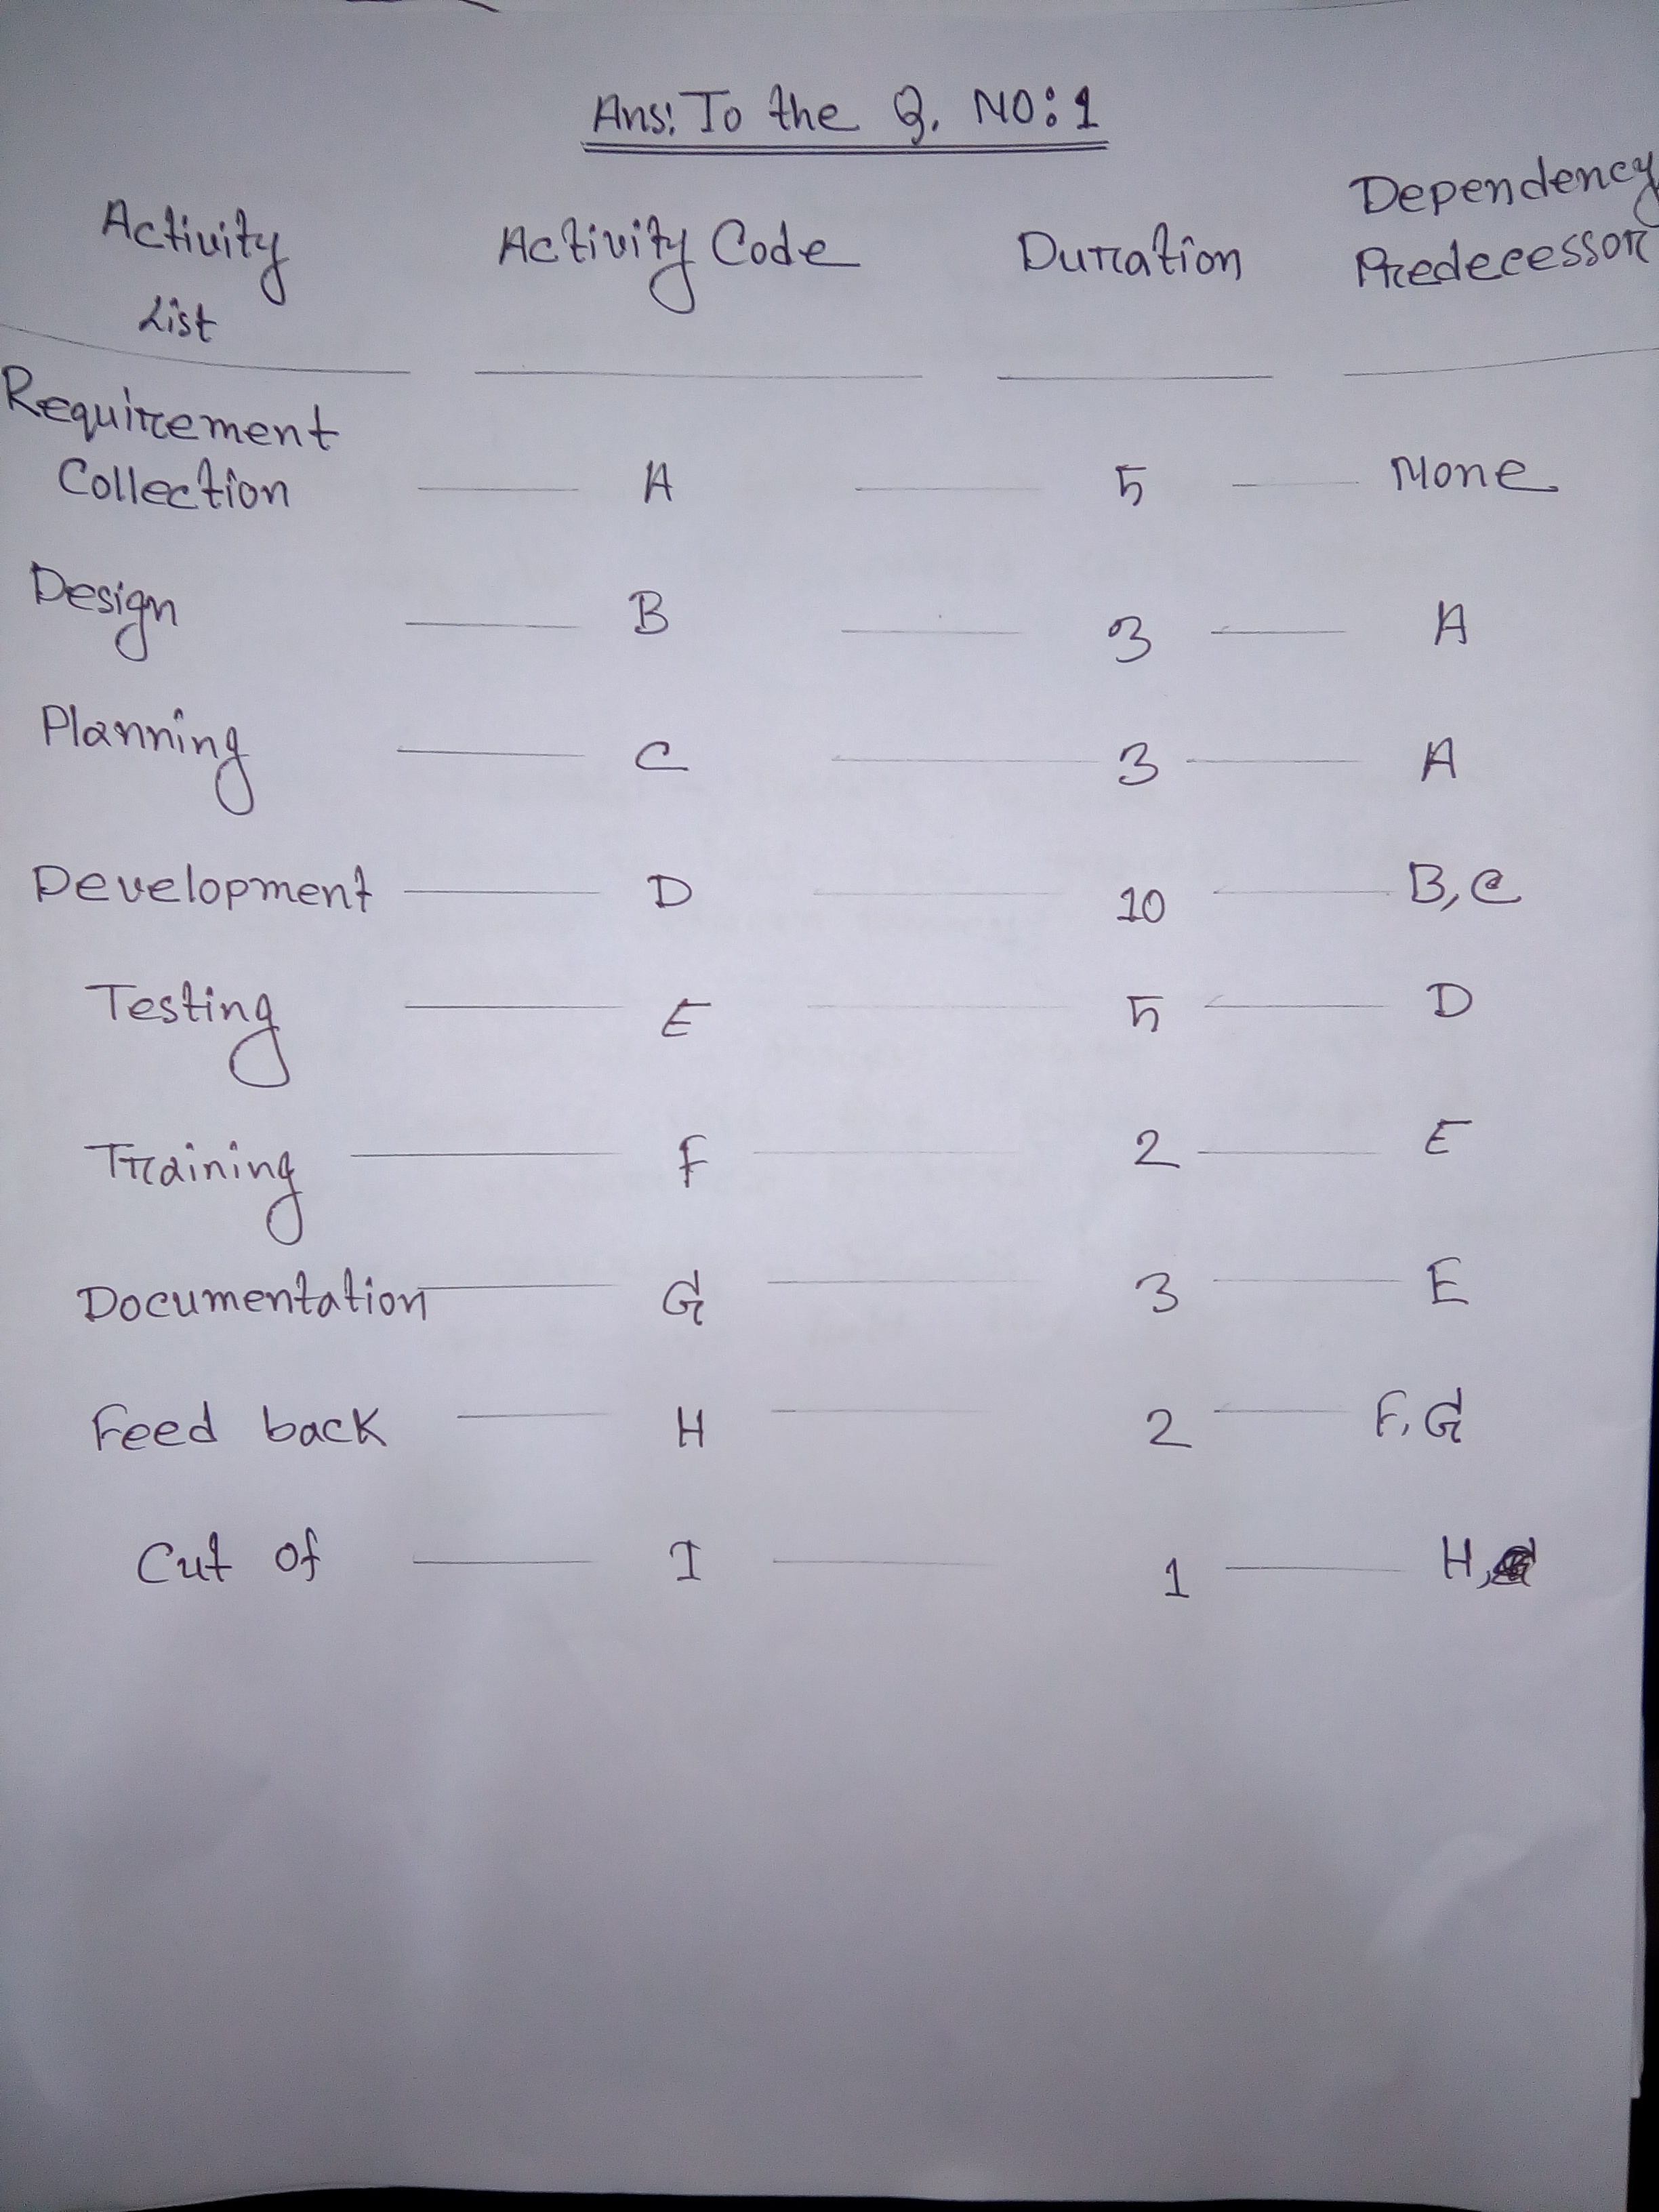 Ans: To the Q. NO: 1
Activity List Activity Code Duration Dependency Predecessor
Requirement Collection A 5 None
Design B 3 A
Planning C 3 A
Development D 10 B, C
Testing E 5 D
Training F 2 E
Documentation G 3 E
Feed back H 2 F, G
Cut of I 1 H,